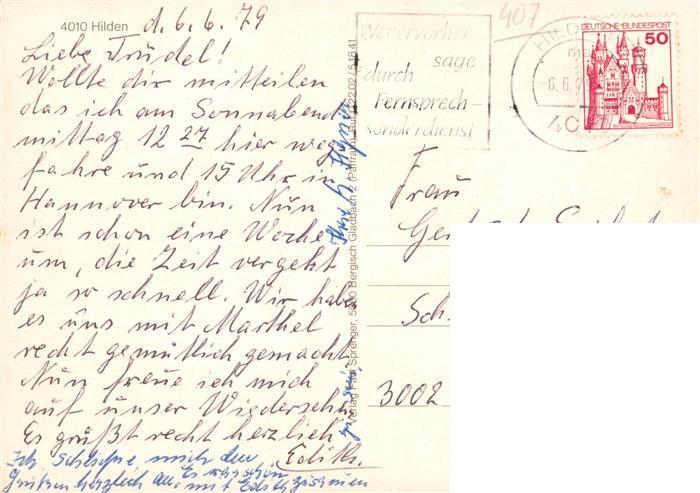 4010 Hilden
d. 6.6.79
Liebe Trudel!
Wollte dir mitteilen
das ich am Sonnabend
mittag 12 27 hier weg
fahre und 15 Uhr in
Hannover bin. Nun
ist schon eine Woche
um, die Zeit vergeht
ja so schnell. Wir haben
es uns mit Marthel
recht gemütlich gemacht
Nun freue ich mich
auf unser Wiedersehn
Es grüßt recht herzlich
Edith.
Ich schließe mich den
Grüßen herzlich an. Es war schön
mit Edith zusammen
Verlag Paul Sprenger, 5060 Bergisch Gladbach 2 (Paffrath)
407
Wetervorher
sage
durch
Fernsprech-
sonderdienst
HILD
-6.6.
40
DEUTSCHE BUNDESPOST
50
Frau
Sch
3002